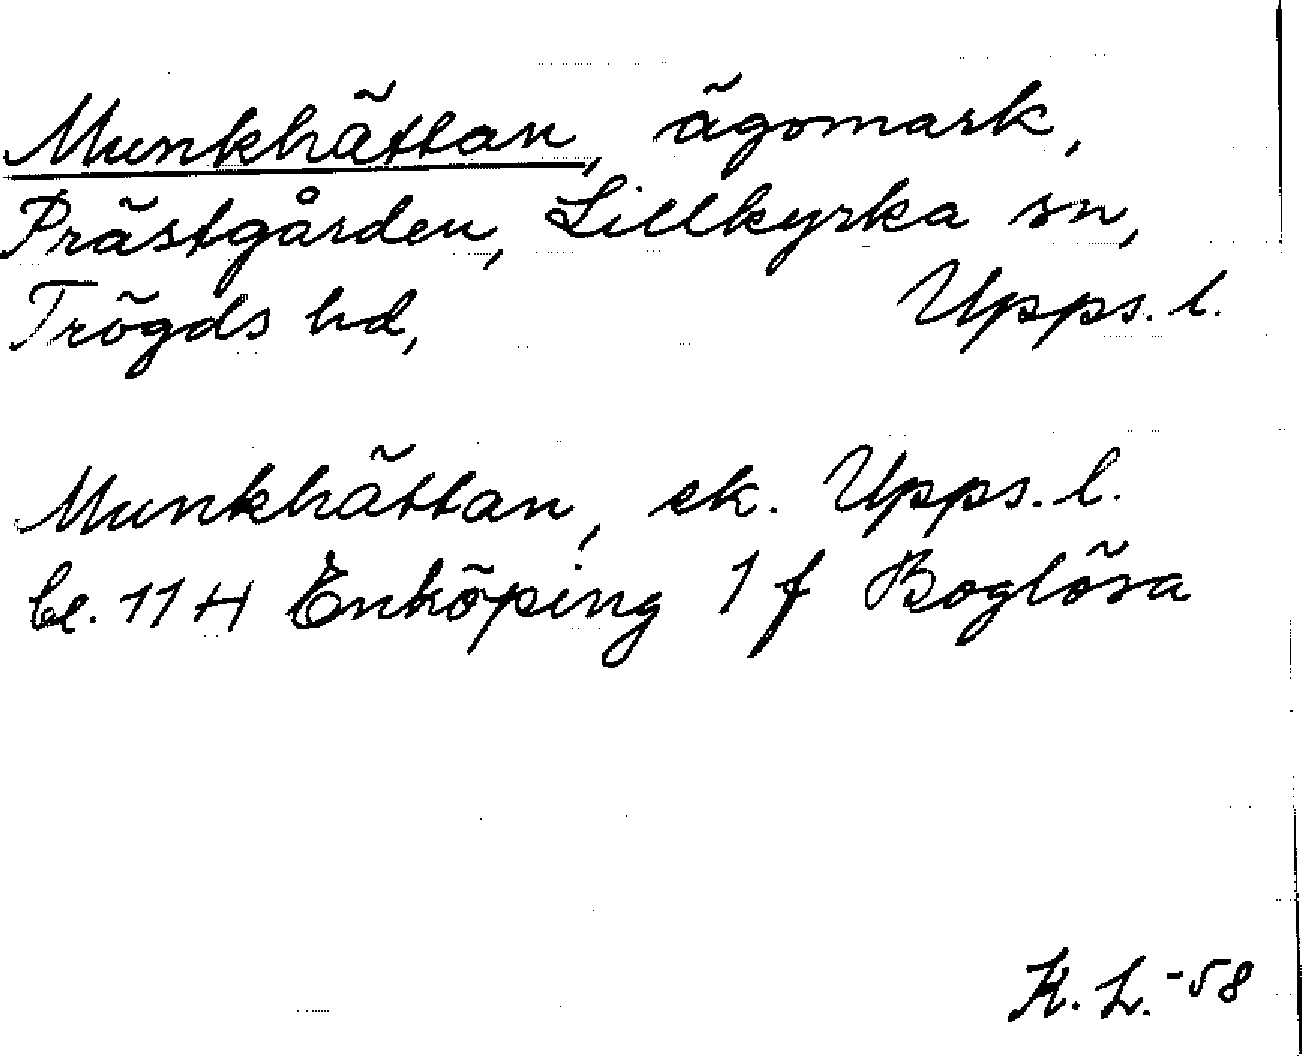 Munkhättan, ägomark,
Prästgården, Lillkyrka sn,
Trögds hd, Upps. l.
Munkhättan, ek. Upps. l.
bl. 11 H Enköping 1 f Boglösa
K. L. -58